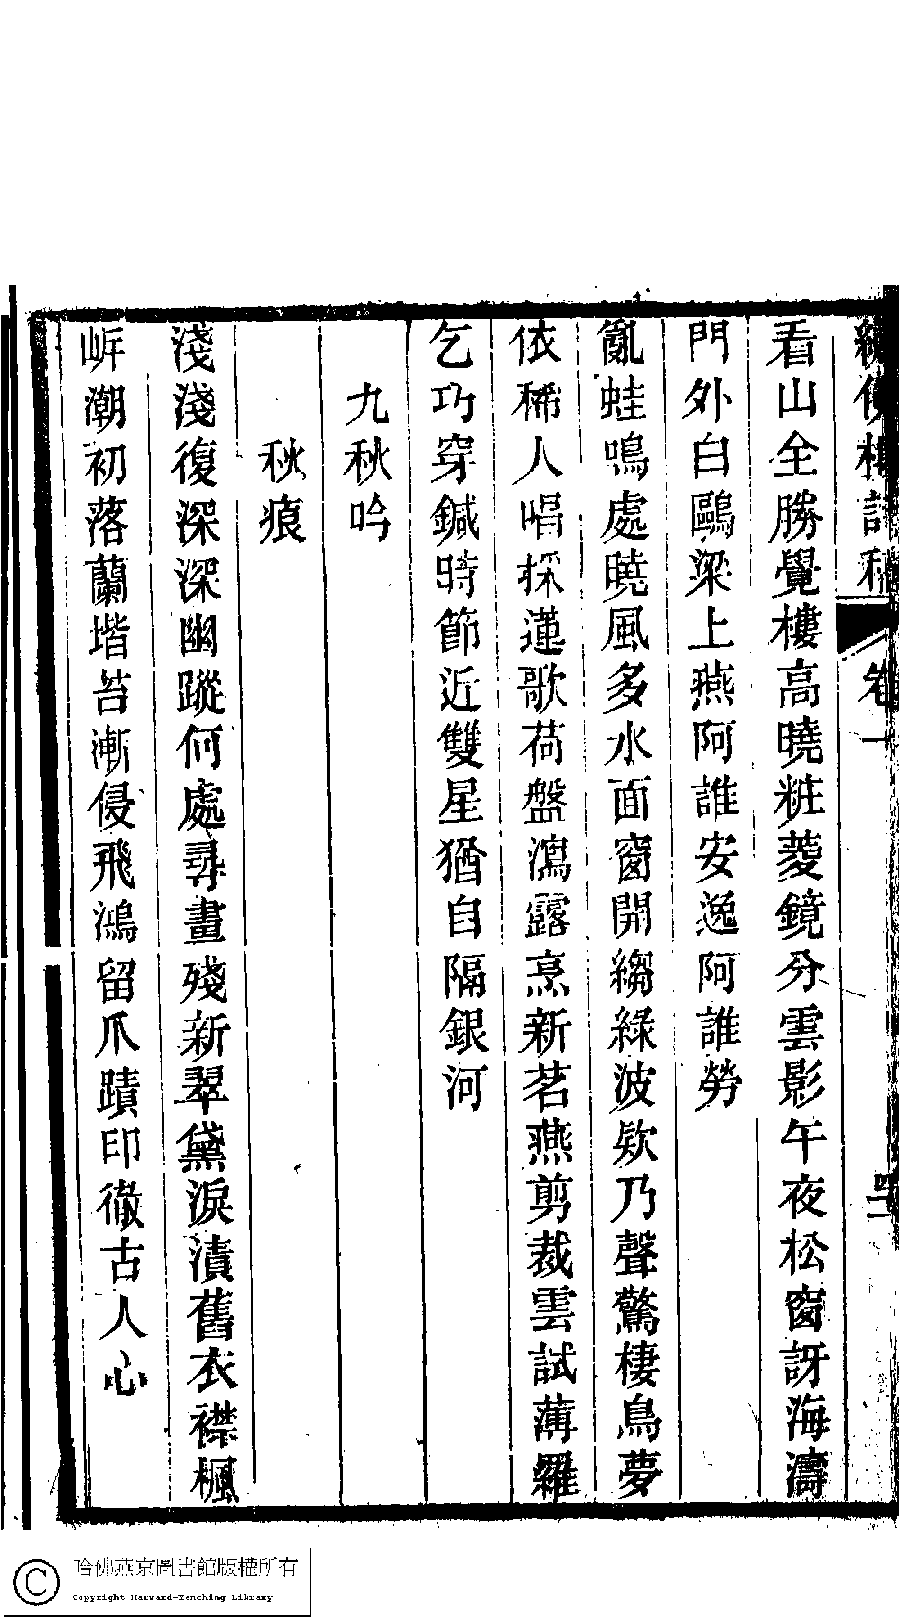 卷一
看山全勝覺樓高曉粧菱鏡分雲影午夜松窗訝海濤
門外白鷗梁上燕阿誰安逸阿誰勞
亂蛙鳴處曉風多水面窗開縐綠波欵乃聲驚棲鳥夢
依稀人唱採蓮歌荷盤瀉露烹新茗燕剪裁雲試薄羅
乞巧穿鍼時節近雙星猶自隔銀河
九秋吟
秋痕
淺淺復深深幽蹤何處尋畫殘新翠黛淚漬舊衣襟楓
㟁潮初落蘭堦苔漸侵飛鴻留爪蹟印徹古人心
哈佛燕京圖書館版權所有
Copyright Harvard-Yenching Library